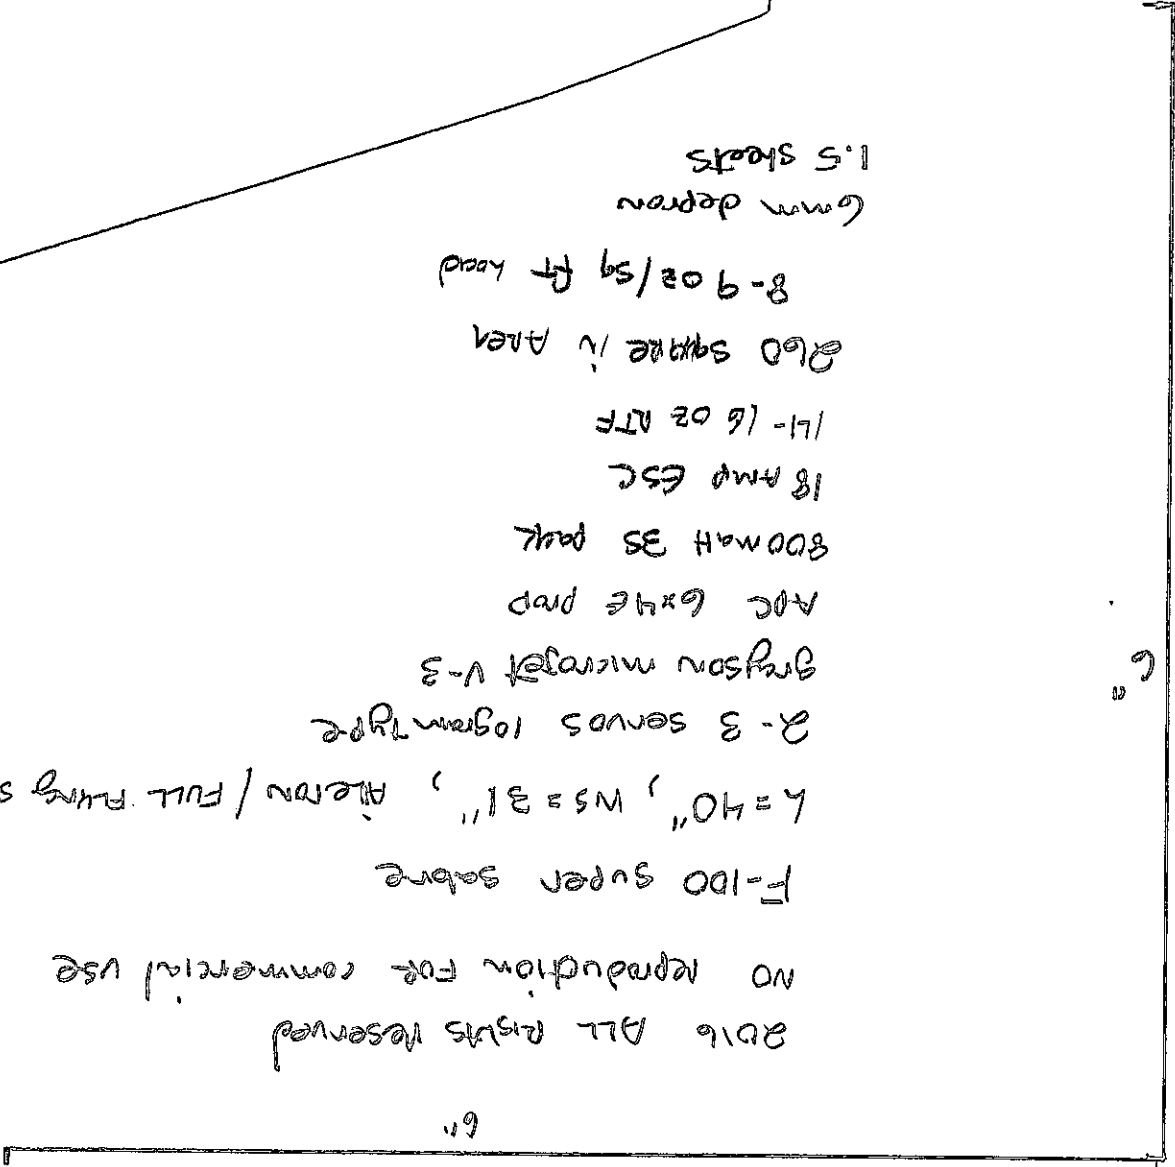 6"
2016 ALL Rights Reserved
NO reproduction FOR commercial use
F-100 Super Sabre
L=40", WS=31", Aileron / FULL Flying S
2-3 servos 10gram Type
greyson microjet V-3
APC 6x4E prop
800maH 3S pack
18 Amp ESC
14-16 oz RTF
260 square in Area
8-9 oz/sq ft load
6mm depron
1.5 sheets
6"